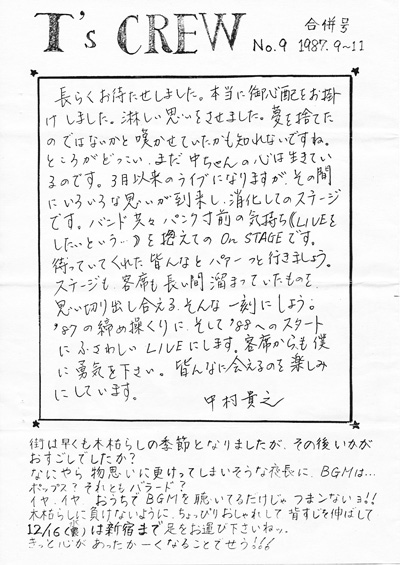 T's CREW
合併号
No.9 1987.9~11
長らくお待たせしました。本当に御心配をお掛
けしました。淋しい思いをさせました。夢を捨てた
のではないかと嘆かせていたかも知れないですね。
ところがどっこい、まだ中ちゃんの心は生きてい
るのです。3月以来のライブになりますが、その間
にいろいろな思いが到来し、消化してのステージ
です。バンド共々パンク寸前の気持ち《LIVEを
したいという…》を携えての On STAGEです。
待っていてくれた皆んなとパァーっと行きましょう。
ステージも、客席も長い間溜まっていたものを、
思い切り出し合える、そんな一刻にしよう。
'87の締め操くりに、そして'88へのスタート
にふさわしい LIVEにします。客席からも、僕
に勇気を下さい。皆んなに会えるのを楽しみ
にしています。
中村貴之
街は早くも木枯らしの季節となりましたが、その後いかが
おすごしでしたか?
なにやら物思いに更けってしまいそうな夜長に、BGMは…
ポップス?それともバラード?
イヤ、イヤ、おうちでBGMを聴いてるだけじゃつまンないョ!!
木枯らしに負けないように、ちょっぴりおしゃれして 背すじを伸ばして
12/16(水)は新宿まで足をお運び下さいねッ。
きっと心があったか〜くなることでせう!!!